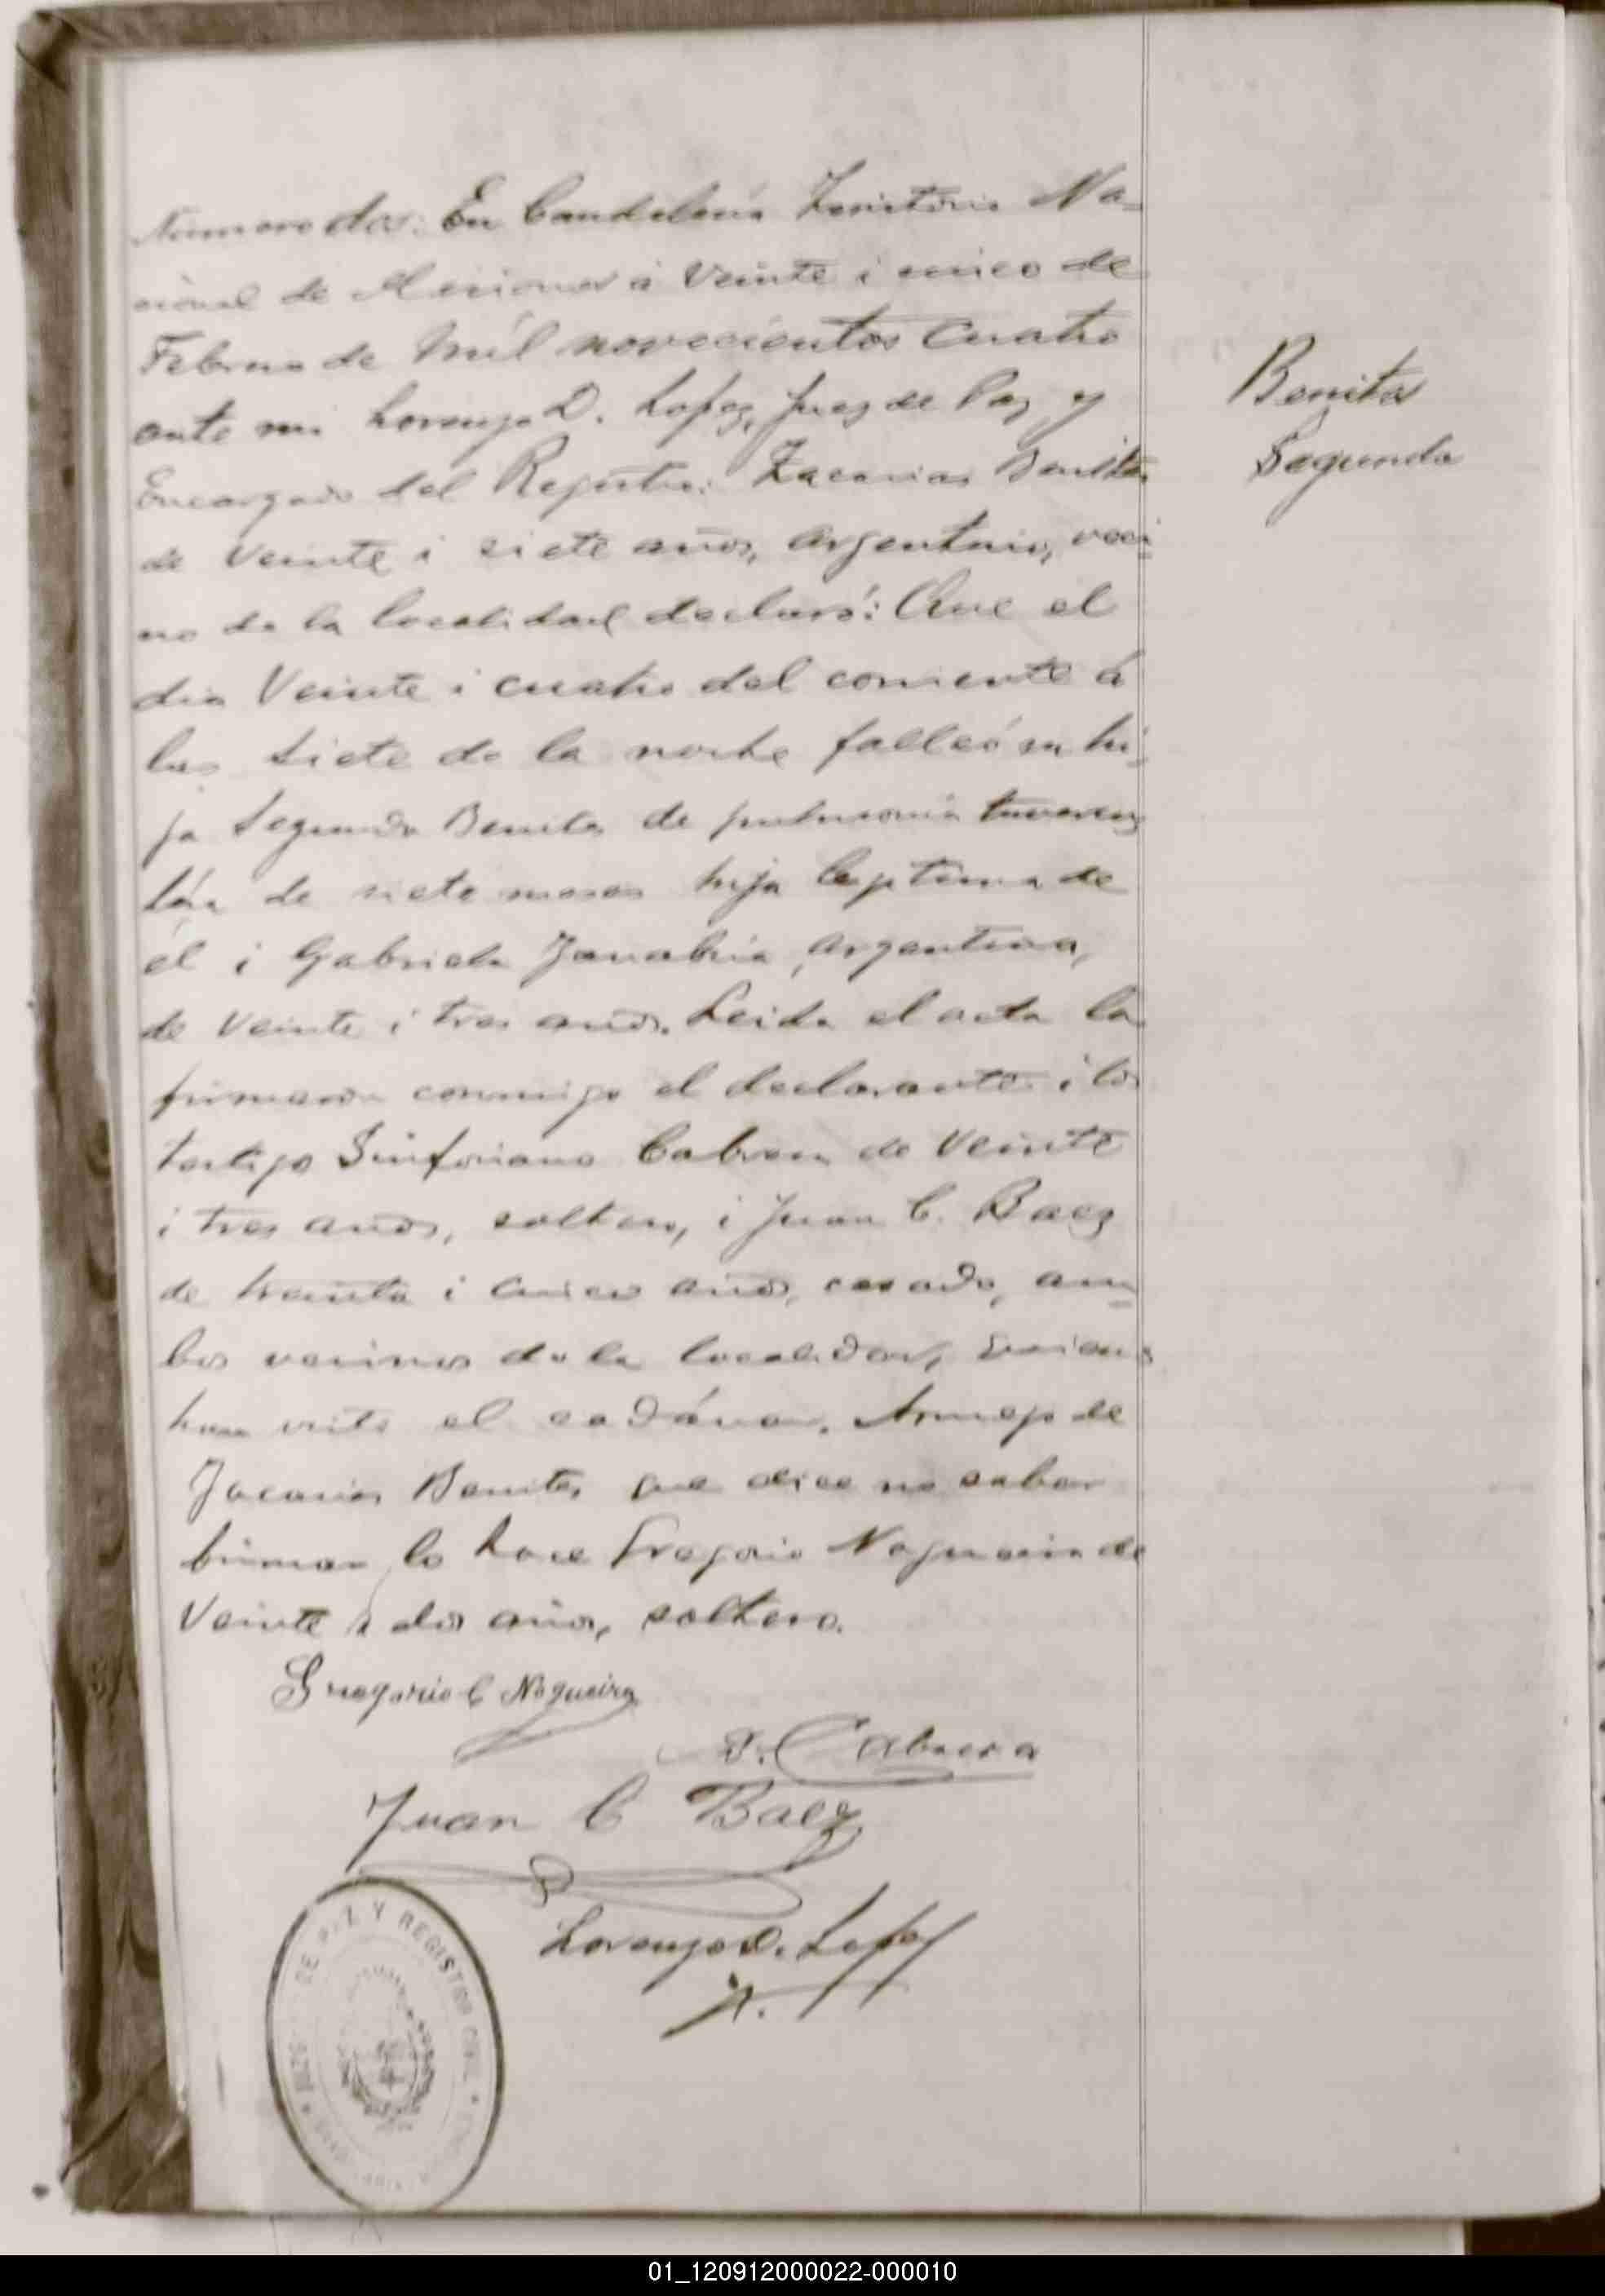 Número dos: En Candelaria Territorio Na-
cional de Misiones á Veinte i cinco de
Febrero de Mil novecientos cuatro
ante mi Lorenzo D. Lopez, Juez de Paz y
Encargado del Registro: Zacarias Benites
de Veinte i siete años, argentino, veci-
no de la localidad declaró: Que el
dia Veinte i cuatro del corriente á
las siete de la noche falleció su hi-
ja Segunda Benites de pulmonia
de siete meses hija leptima de
él i Gabriela Zanabria, argentina,
de Veinte i tres años. Leida el acta la
firmaron conmigo el declarante i los
testigos Sinforiano Cabrera de Veinte
i tres años, soltero, i Juan C. Baez
de treinta i cinco años, casado, am-
bos vecinos de la localidad, quienes
han visto el cadáver. A ruego de
Zacarias Benites que dice no saber
firmar lo hace Gregorio Nogueira de
Veinte i dos años, soltero.
Gregorio C Nogueira
S. Cabrera
Juan C Baez
Lorenzo D. Lopez
Benites
Segunda
JUZG DE PAZ Y REGISTRO CIVIL
01_120912000022-000010